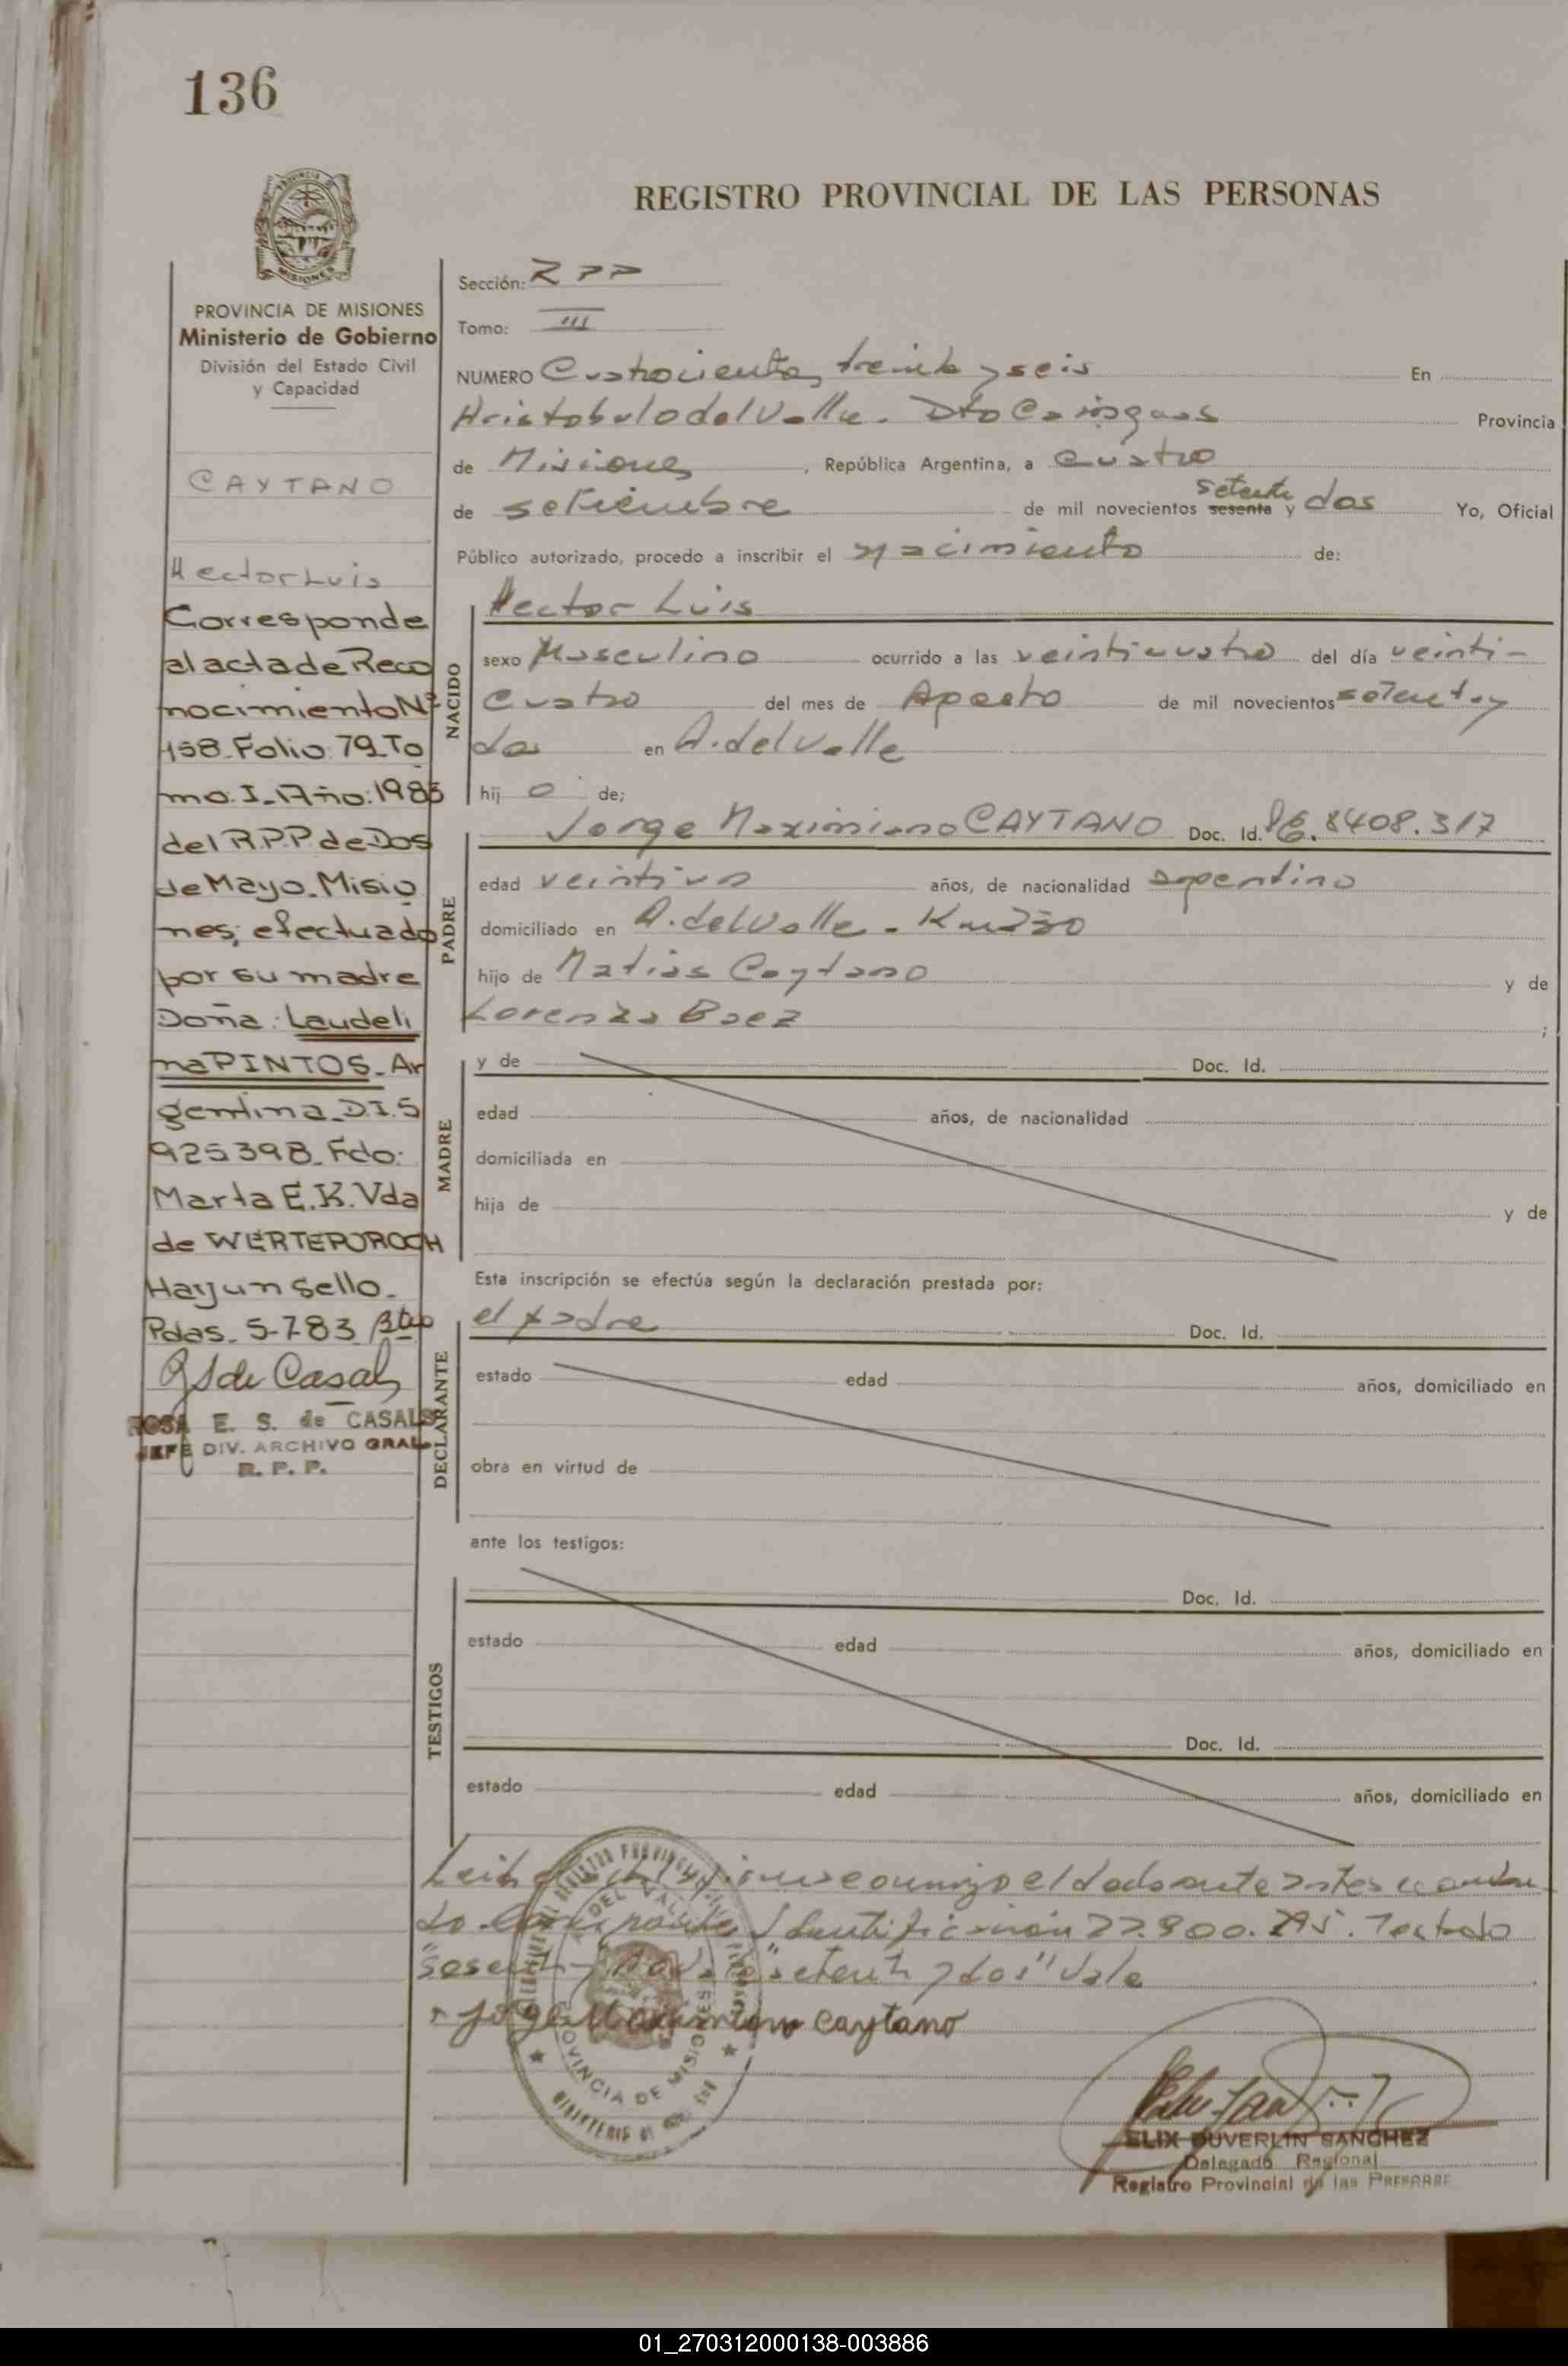 136
REGISTRO PROVINCIAL DE LAS PERSONAS
PROVINCIA DE MISIONES
Ministerio de Gobierno
División del Estado Civil
y Capacidad
CAYTANO
Hector Luis
Corresponde
al acta de Reco
nocimiento Nº
458 Folio: 79 To
mo: I. Año: 1983
del R.P.P de Dos
de Mayo. Misio
nes; efectuado
por su madre
Doña: Laudeli
na PINTOS. Ar
gentina D.I. 5
925398. Fdo:
Marta E. K. Vda
de WERTEPOROCH
Hay un Sello.
Pdas. 5-7-83
RS de Casals
ROSA E. S. de CASALS
JEFE DIV. ARCHIVO GRAL.
R. P. P.
Sección:
Tomo: III
NUMERO Cuatrocientos treinta y seis En
Aristobulo del Valle. Dto Cainguas Provincia
de Misiones, República Argentina, a cuatro
setenta
de setiembre de mil novecientos sesenta y dos Yo, Oficial
Público autorizado, procedo a inscribir el nacimiento de:
NACIDO
Hector Luis
sexo Masculino ocurrido a las veinticuatro del día veinti-
cuatro del mes de Agosto de mil novecientos setenta y
dos en A. del Valle
hij o de;
PADRE
Jorge Maximiano CAYTANO Doc. Id. 8408.317
edad veintiun años, de nacionalidad argentino
domiciliado en A. del Valle - Km
hijo de Matias Caytano y de
Lorenza Baez ;
MADRE
y de Doc. Id.
edad años, de nacionalidad
domiciliada en
hija de y de
Esta inscripción se efectúa según la declaración prestada por:
DECLARANTE
el padre Doc. Id.
estado edad años, domiciliado en
obra en virtud de
ante los testigos:
TESTIGOS
Doc. Id.
estado edad años, domiciliado en
Doc. Id.
estado edad años, domiciliado en
Leida el acta firma conmigo el declarante antes
Identificación 22.900. Testado
"setenta y dos" Vale
Jorge Maximiano Caytano
PROVINCIA DE MISIONES
ELIX DUVERLIN SANCHEZ
Delegado Regional
Registro Provincial de las Personas
01_270312000138-003886